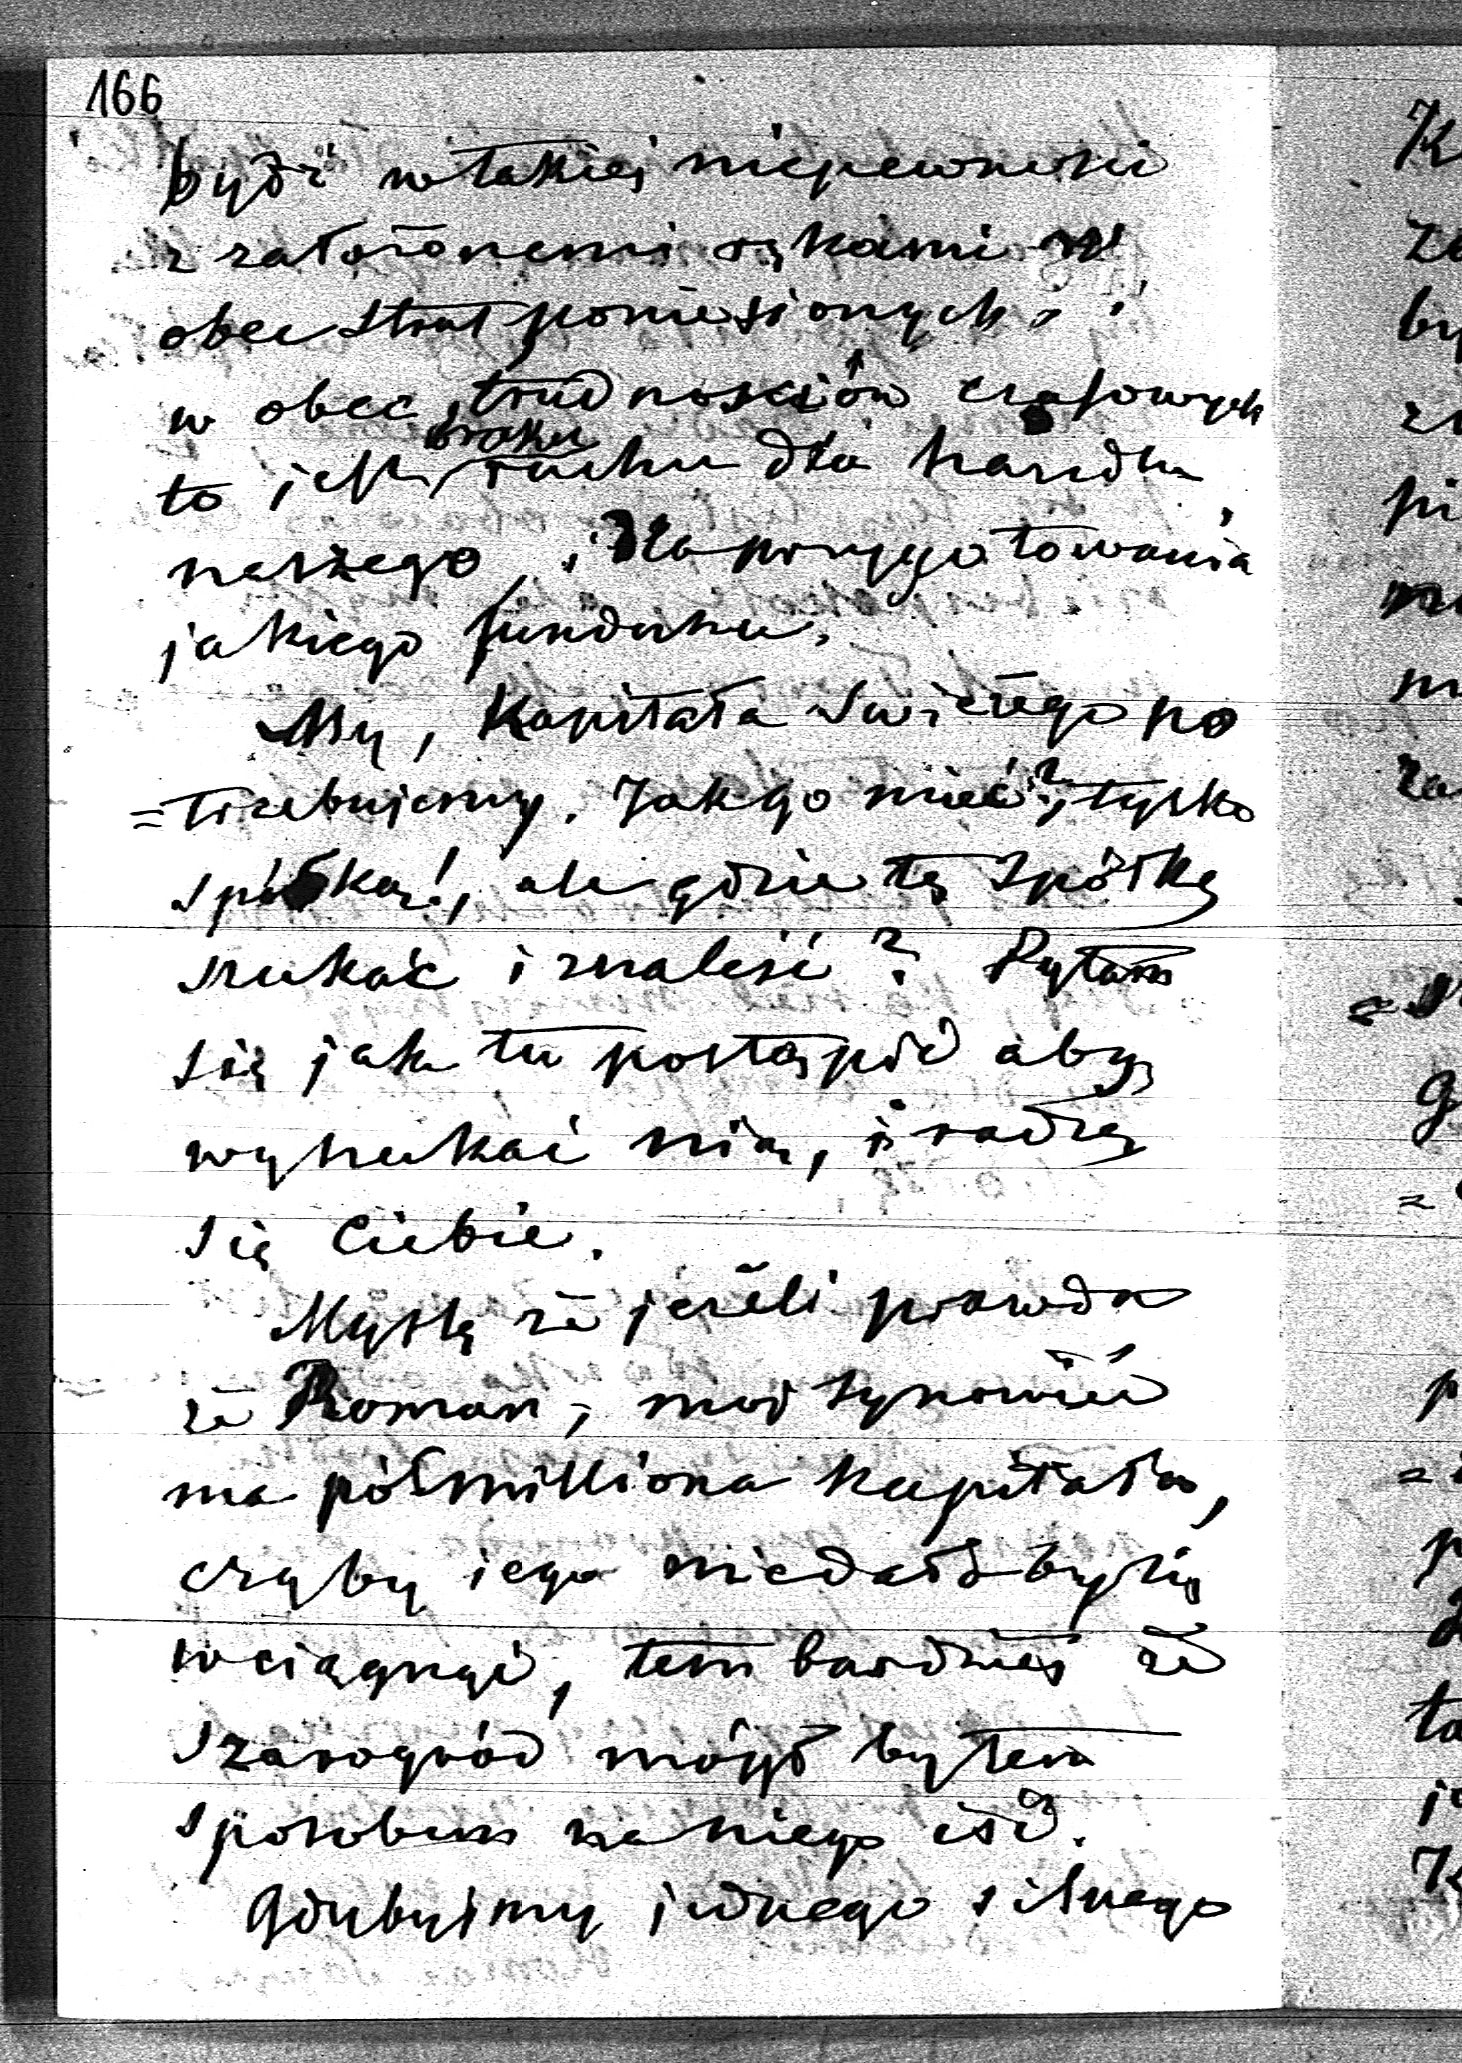 166
bydź w takiej niepewności
z założonemi rękami w
obec strat poniesionych, i
w obec trudnościów czasowych
to jest braku ruchu dla handlu
naszego, i dla przygotowania
jakiego funduszu.
My, Kapitała Swieżego po
=trzebujemy. Jak go mieć?, tylko
spółką!, ale gdzie tę Spółkę
szukać i znaleść? Pytam
się jak tu postąpić aby
wyszukać nią, i radzę
się Ciebie.
Myślę że jeżeli prawda
że Roman, moj synowiec
ma półmilliona Kapitału,
czyby jego niedałoby się
wciągnąć, tem bardziej że
Szarogród mógł by tem
sposobem na niego iść.
Gdybyśmy jednego silnego